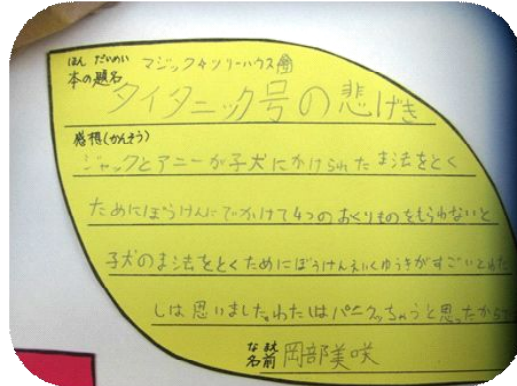 ほん だいめい
本の題名 マジックツリーハウス
タイタニック号の悲げき
感想(かんそう)
ジャックとアニーが子犬にかけられたま法をとく
ためにぼうけんにでかけて4つのおくりものをもらわないと
子犬のま法をとくためにぼうけんえいくゆうきがすごいとわた
しは思いました。わたしはパニクっちゃうと思ったからで
な まえ
名前 岡部美咲